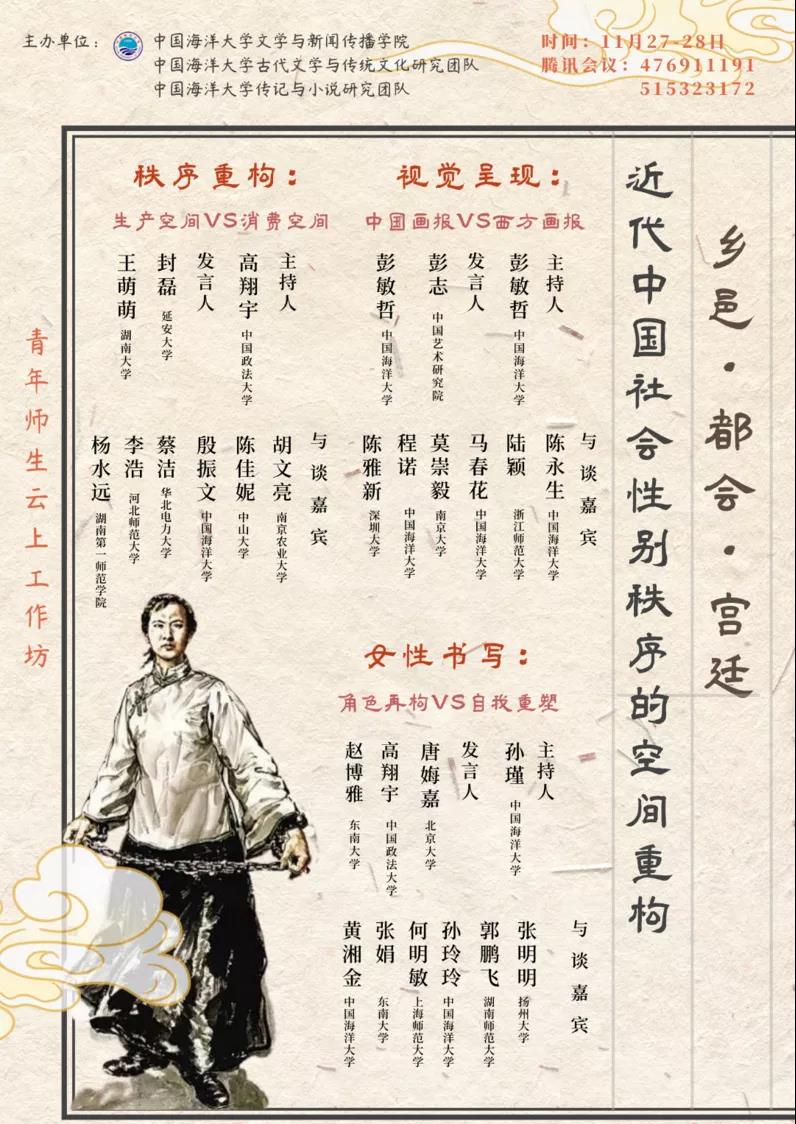 主办单位：
中国海洋大学文学与新闻传播学院
中国海洋大学古代文学与传统文化研究团队
中国海洋大学传记与小说研究团队
时间：11月27-28日
腾讯会议：476911191
515323172
乡邑·都会·宫廷
近代中国社会性别秩序的空间重构
视觉呈现：
中国画报VS西方画报
主持人
彭敏哲 中国海洋大学
发言人
彭志 中国艺术研究院
彭敏哲 中国海洋大学
与谈嘉宾
陈永生 中国海洋大学
陆颖 浙江师范大学
马春花 中国海洋大学
莫崇毅 南京大学
程诺 中国海洋大学
陈雅新 深圳大学
秩序重构：
生产空间VS消费空间
主持人
高翔宇 中国政法大学
发言人
封磊 延安大学
王萌萌 湖南大学
与谈嘉宾
胡文亮 南京农业大学
陈佳妮 中山大学
殷振文 中国海洋大学
蔡洁 华北电力大学
李浩 河北师范大学
杨水远 湖南第一师范学院
女性书写：
角色再构VS自我重塑
主持人
孙瑾 中国海洋大学
发言人
唐娒嘉 北京大学
高翔宇 中国政法大学
赵博雅 东南大学
与谈嘉宾
张明明 扬州大学
郭鹏飞 湖南师范大学
孙玲玲 中国海洋大学
何明敏 上海师范大学
张娟 东南大学
黄湘金 中国海洋大学
青年师生云上工作坊